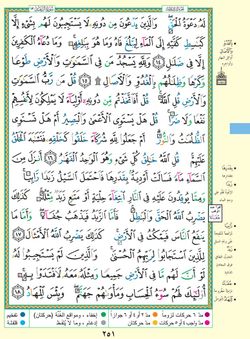 لَهُۥ دَعْوَةُ ٱلْحَقِّ ۖ وَٱلَّذِينَ يَدْعُونَ مِن دُونِهِۦ لَا يَسْتَجِيبُونَ لَهُم بِشَىْءٍ إِلَّا
كَبَٰسِطِ كَفَّيْهِ إِلَى ٱلْمَآءِ لِيَبْلُغَ فَاهُ وَمَا هُوَ بِبَٰلِغِهِۦ ۚ وَمَا دُعَآءُ ٱلْكَٰفِرِينَ
إِلَّا فِى ضَلَٰلٍ ١٤ وَلِلَّهِ يَسْجُدُ مَن فِى ٱلسَّمَٰوَٰتِ وَٱلْأَرْضِ طَوْعًا
وَكَرْهًا وَظِلَٰلُهُم بِٱلْغُدُوِّ وَٱلْءَاصَالِ ۩ ١٥ قُلْ مَن رَّبُّ ٱلسَّمَٰوَٰتِ
وَٱلْأَرْضِ قُلِ ٱللَّهُ ۚ قُلْ أَفَٱتَّخَذْتُم مِّن دُونِهِۦٓ أَوْلِيَآءَ لَا يَمْلِكُونَ
لِأَنفُسِهِمْ نَفْعًا وَلَا ضَرًّا ۚ قُلْ هَلْ يَسْتَوِى ٱلْأَعْمَىٰ وَٱلْبَصِيرُ أَمْ هَلْ تَسْتَوِى
ٱلظُّلُمَٰتُ وَٱلنُّورُ ۗ أَمْ جَعَلُوا۟ لِلَّهِ شُرَكَآءَ خَلَقُوا۟ كَخَلْقِهِۦ فَتَشَٰبَهَ ٱلْخَلْقُ
عَلَيْهِمْ ۚ قُلِ ٱللَّهُ خَٰلِقُ كُلِّ شَىْءٍ وَهُوَ ٱلْوَٰحِدُ ٱلْقَهَّٰرُ ١٦ أَنزَلَ مِنَ
ٱلسَّمَآءِ مَآءً فَسَالَتْ أَوْدِيَةٌۢ بِقَدَرِهَا فَٱحْتَمَلَ ٱلسَّيْلُ زَبَدًا رَّابِيًا ۚ
وَمِمَّا يُوقِدُونَ عَلَيْهِ فِى ٱلنَّارِ ٱبْتِغَآءَ حِلْيَةٍ أَوْ مَتَٰعٍ زَبَدٌ مِّثْلُهُۥ ۚ كَذَٰلِكَ
يَضْرِبُ ٱللَّهُ ٱلْحَقَّ وَٱلْبَٰطِلَ ۚ فَأَمَّا ٱلزَّبَدُ فَيَذْهَبُ جُفَآءً ۖ وَأَمَّا
مَا يَنفَعُ ٱلنَّاسَ فَيَمْكُثُ فِى ٱلْأَرْضِ ۚ كَذَٰلِكَ يَضْرِبُ ٱللَّهُ ٱلْأَمْثَالَ
١٧ لِلَّذِينَ ٱسْتَجَابُوا۟ لِرَبِّهِمُ ٱلْحُسْنَىٰ ۚ وَٱلَّذِينَ لَمْ يَسْتَجِيبُوا۟
لَهُۥ لَوْ أَنَّ لَهُم مَّا فِى ٱلْأَرْضِ جَمِيعًا وَمِثْلَهُۥ مَعَهُۥ لَٱفْتَدَوْا۟ بِهِۦٓ ۚ
أُو۟لَٰٓئِكَ لَهُمْ سُوٓءُ ٱلْحِسَابِ وَمَأْوَىٰهُمْ جَهَنَّمُ ۖ وَبِئْسَ ٱلْمِهَادُ ١٨
٢٥١